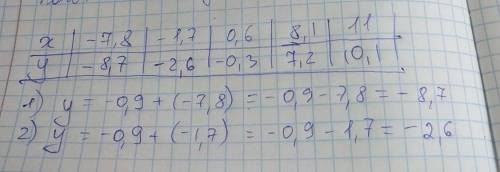 x | -7,8 | -1,7 | 0,6 | 8,1 | 11
y | -8,7 | -2,6 | -0,3 | 7,2 | 10,1
1) y = -0,9 + (-7,8) = -0,9 - 7,8 = -8,7
2) y = -0,9 + (-1,7) = -0,9 - 1,7 = -2,6